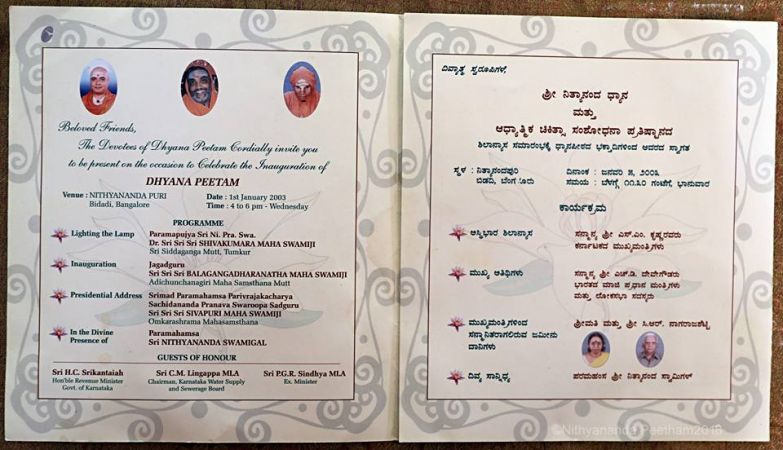 Beloved Friends,
The Devotees of Dhyana Peetam Cordially invite you
to be present on the occasion to Celebrate the Inauguration of
DHYANA PEETAM
Venue : NITHYANANDA PURI
Bidadi, Bangalore
Date : 1st January 2003
Time : 4 to 6 pm - Wednesday
PROGRAMME
Lighting the Lamp
Paramapujya Sri Ni. Pra. Swa.
Dr. Sri Sri Sri SHIVAKUMARA MAHA SWAMIJI
Sri Siddaganga Mutt, Tumkur
Inauguration
Jagadguru
Sri Sri Sri Sri BALAGANGADHARANATHA MAHA SWAMIJI
Adichunchanagiri Maha Samsthana Mutt
Presidential Address
Srimad Paramahamsa Parivrajakacharya
Sachidananda Pranava Swaroopa Sadguru
Sri Sri Sri SIVAPURI MAHA SWAMIJI
Omkarashrama Mahasamsthana
In the Divine
Presence of
Paramahamsa
Sri NITHYANANDA SWAMIGAL
GUESTS OF HONOUR
Sri H.C. Srikantaiah
Hon'ble Revenue Minister
Govt. of Karnataka
Sri C.M. Lingappa MLA
Chairman, Karnataka Water Supply
and Sewerage Board
Sri P.G.R. Sindhya MLA
Ex. Minister
ದಿವ್ಯಾತ್ಮ ಸ್ವರೂಪಿಗಳೆ,
ಶ್ರೀ ನಿತ್ಯಾನಂದ ಧ್ಯಾನ
ಮತ್ತು
ಆಧ್ಯಾತ್ಮಿಕ ಚಿಕಿತ್ಸಾ ಸಂಶೋಧನಾ ಪ್ರತಿಷ್ಠಾನದ
ಶಿಲಾನ್ಯಾಸ ಸಮಾರಂಭಕ್ಕೆ ಧ್ಯಾನಪೀಠದ ಭಕ್ತಾದಿಗಳಿಂದ ಆದರದ ಸ್ವಾಗತ
ಸ್ಥಳ : ನಿತ್ಯಾನಂದಪುರಿ
ಬಿಡದಿ, ಬೆಂಗಳೂರು
ದಿನಾಂಕ : ಜನವರಿ ೫, ೨೦೦೩
ಸಮಯ : ಬೆಳಗ್ಗೆ ೧೧.೩೦ ಗಂಟೆಗೆ, ಭಾನುವಾರ
ಕಾರ್ಯಕ್ರಮ
ಅಸ್ತಿಭಾರ ಶಿಲಾನ್ಯಾಸ
ಸನ್ಮಾನ್ಯ ಶ್ರೀ ಎಸ್.ಎಂ. ಕೃಷ್ಣರವರು
ಕರ್ನಾಟಕದ ಮುಖ್ಯಮಂತ್ರಿಗಳು
ಮುಖ್ಯ ಅತಿಥಿಗಳು
ಸನ್ಮಾನ್ಯ ಶ್ರೀ ಎಚ್.ಡಿ. ದೇವೇಗೌಡರು
ಭಾರತದ ಮಾಜಿ ಪ್ರಧಾನ ಮಂತ್ರಿಗಳು
ಮತ್ತು ಲೋಕಸಭಾ ಸದಸ್ಯರು
ಮುಖ್ಯಮಂತ್ರಿಗಳಿಂದ
ಸನ್ಮಾನಿತರಾಗಲಿರುವ ಜಮೀನು
ದಾನಿಗಳು
ಶ್ರೀಮತಿ ಮತ್ತು ಶ್ರೀ ಸಿ.ಆರ್. ನಾಗರಾಜಶೆಟ್ಟಿ
ದಿವ್ಯ ಸಾನ್ನಿಧ್ಯ
ಪರಮಹಂಸ ಶ್ರೀ ನಿತ್ಯಾನಂದ ಸ್ವಾಮಿಗಳ್
©Nithyananda Peetham2018